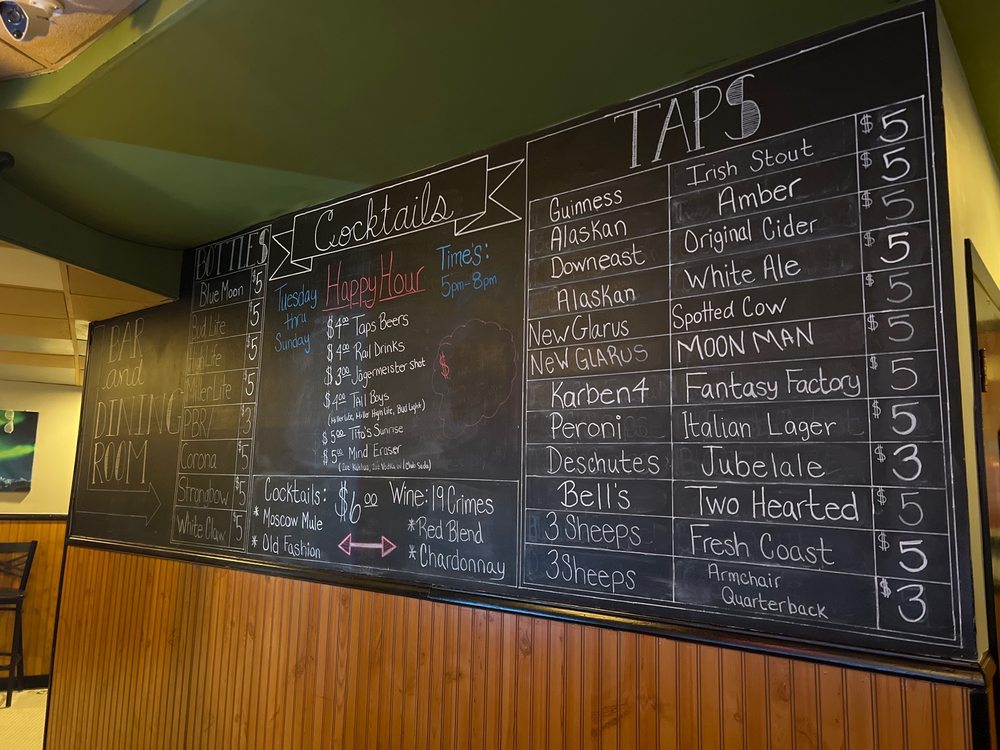 BAR
and
DINING
ROOM
BOTTLES
Blue Moon $5
Bud Lite $5
High Life $5
Miller Lite $5
PBR $3
Corona $5
Strongbow $5
White Claw $5
Cocktails
Tuesday
thru
Sunday
Happy Hour
Time's:
5pm-8pm
$4.00 Taps Beers
$4.00 Rail Drinks
$3.00 Jägermeister shot
$4.00 Tall Boys
(Miller Lite, Miller High Life, Bud Light)
$5.00 Tito's Sunrise
$5.00 Mind Eraser
$
Cocktails: $6.00
* Moscow Mule
* Old Fashion
Wine: 19 Crimes
* Red Blend
* Chardonnay
TAPS
Guinness Irish Stout $5
Alaskan Amber $5
Downeast Original Cider $5
Alaskan White Ale $5
New Glarus Spotted Cow $5
NEW GLARUS MOON MAN $5
Karben4 Fantasy Factory $5
Peroni Italian Lager $5
Deschutes Jubelale $3
Bell's Two Hearted $5
3 Sheeps Fresh Coast $5
3 Sheeps Armchair Quarterback $3